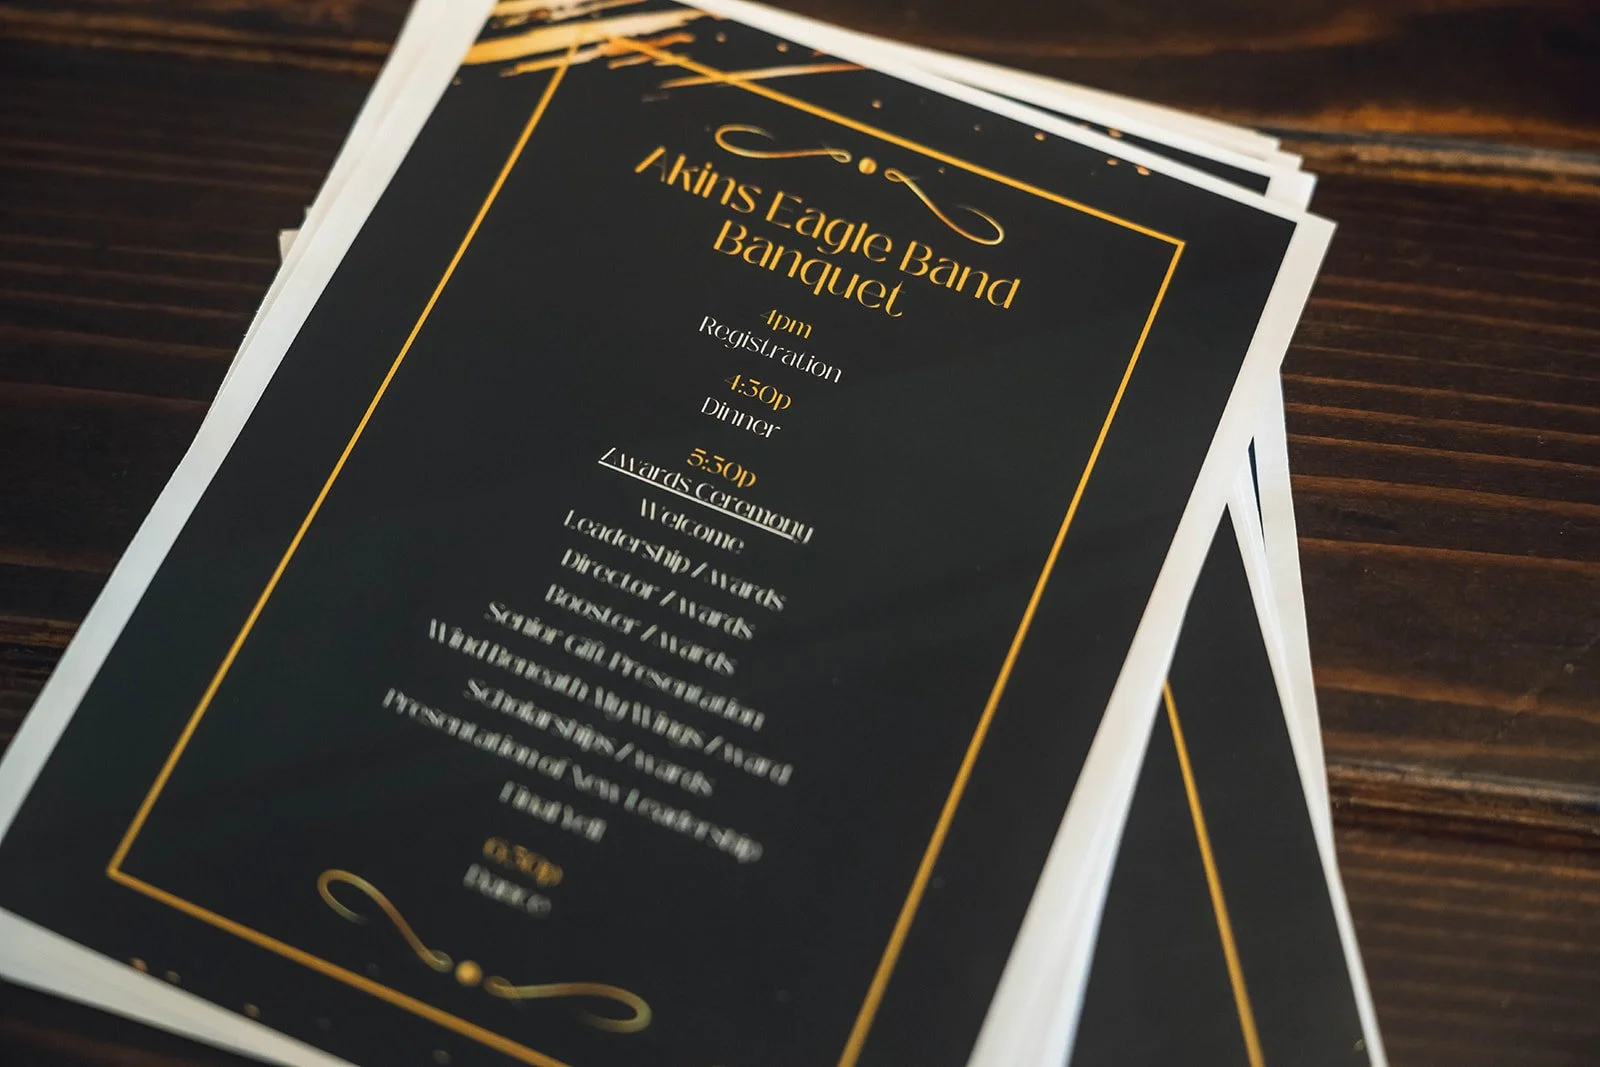 Akins Eagle Band
Banquet
4pm
Registration
4:30p
Dinner
5:30p
Awards Ceremony
Welcome
Leadership Awards
Director Awards
Booster Awards
Senior Gift Presentation
Wind Beneath My Wings Award
Scholarships Awards
Presentation of New Leadership
Final Yell
6:30p
Dance